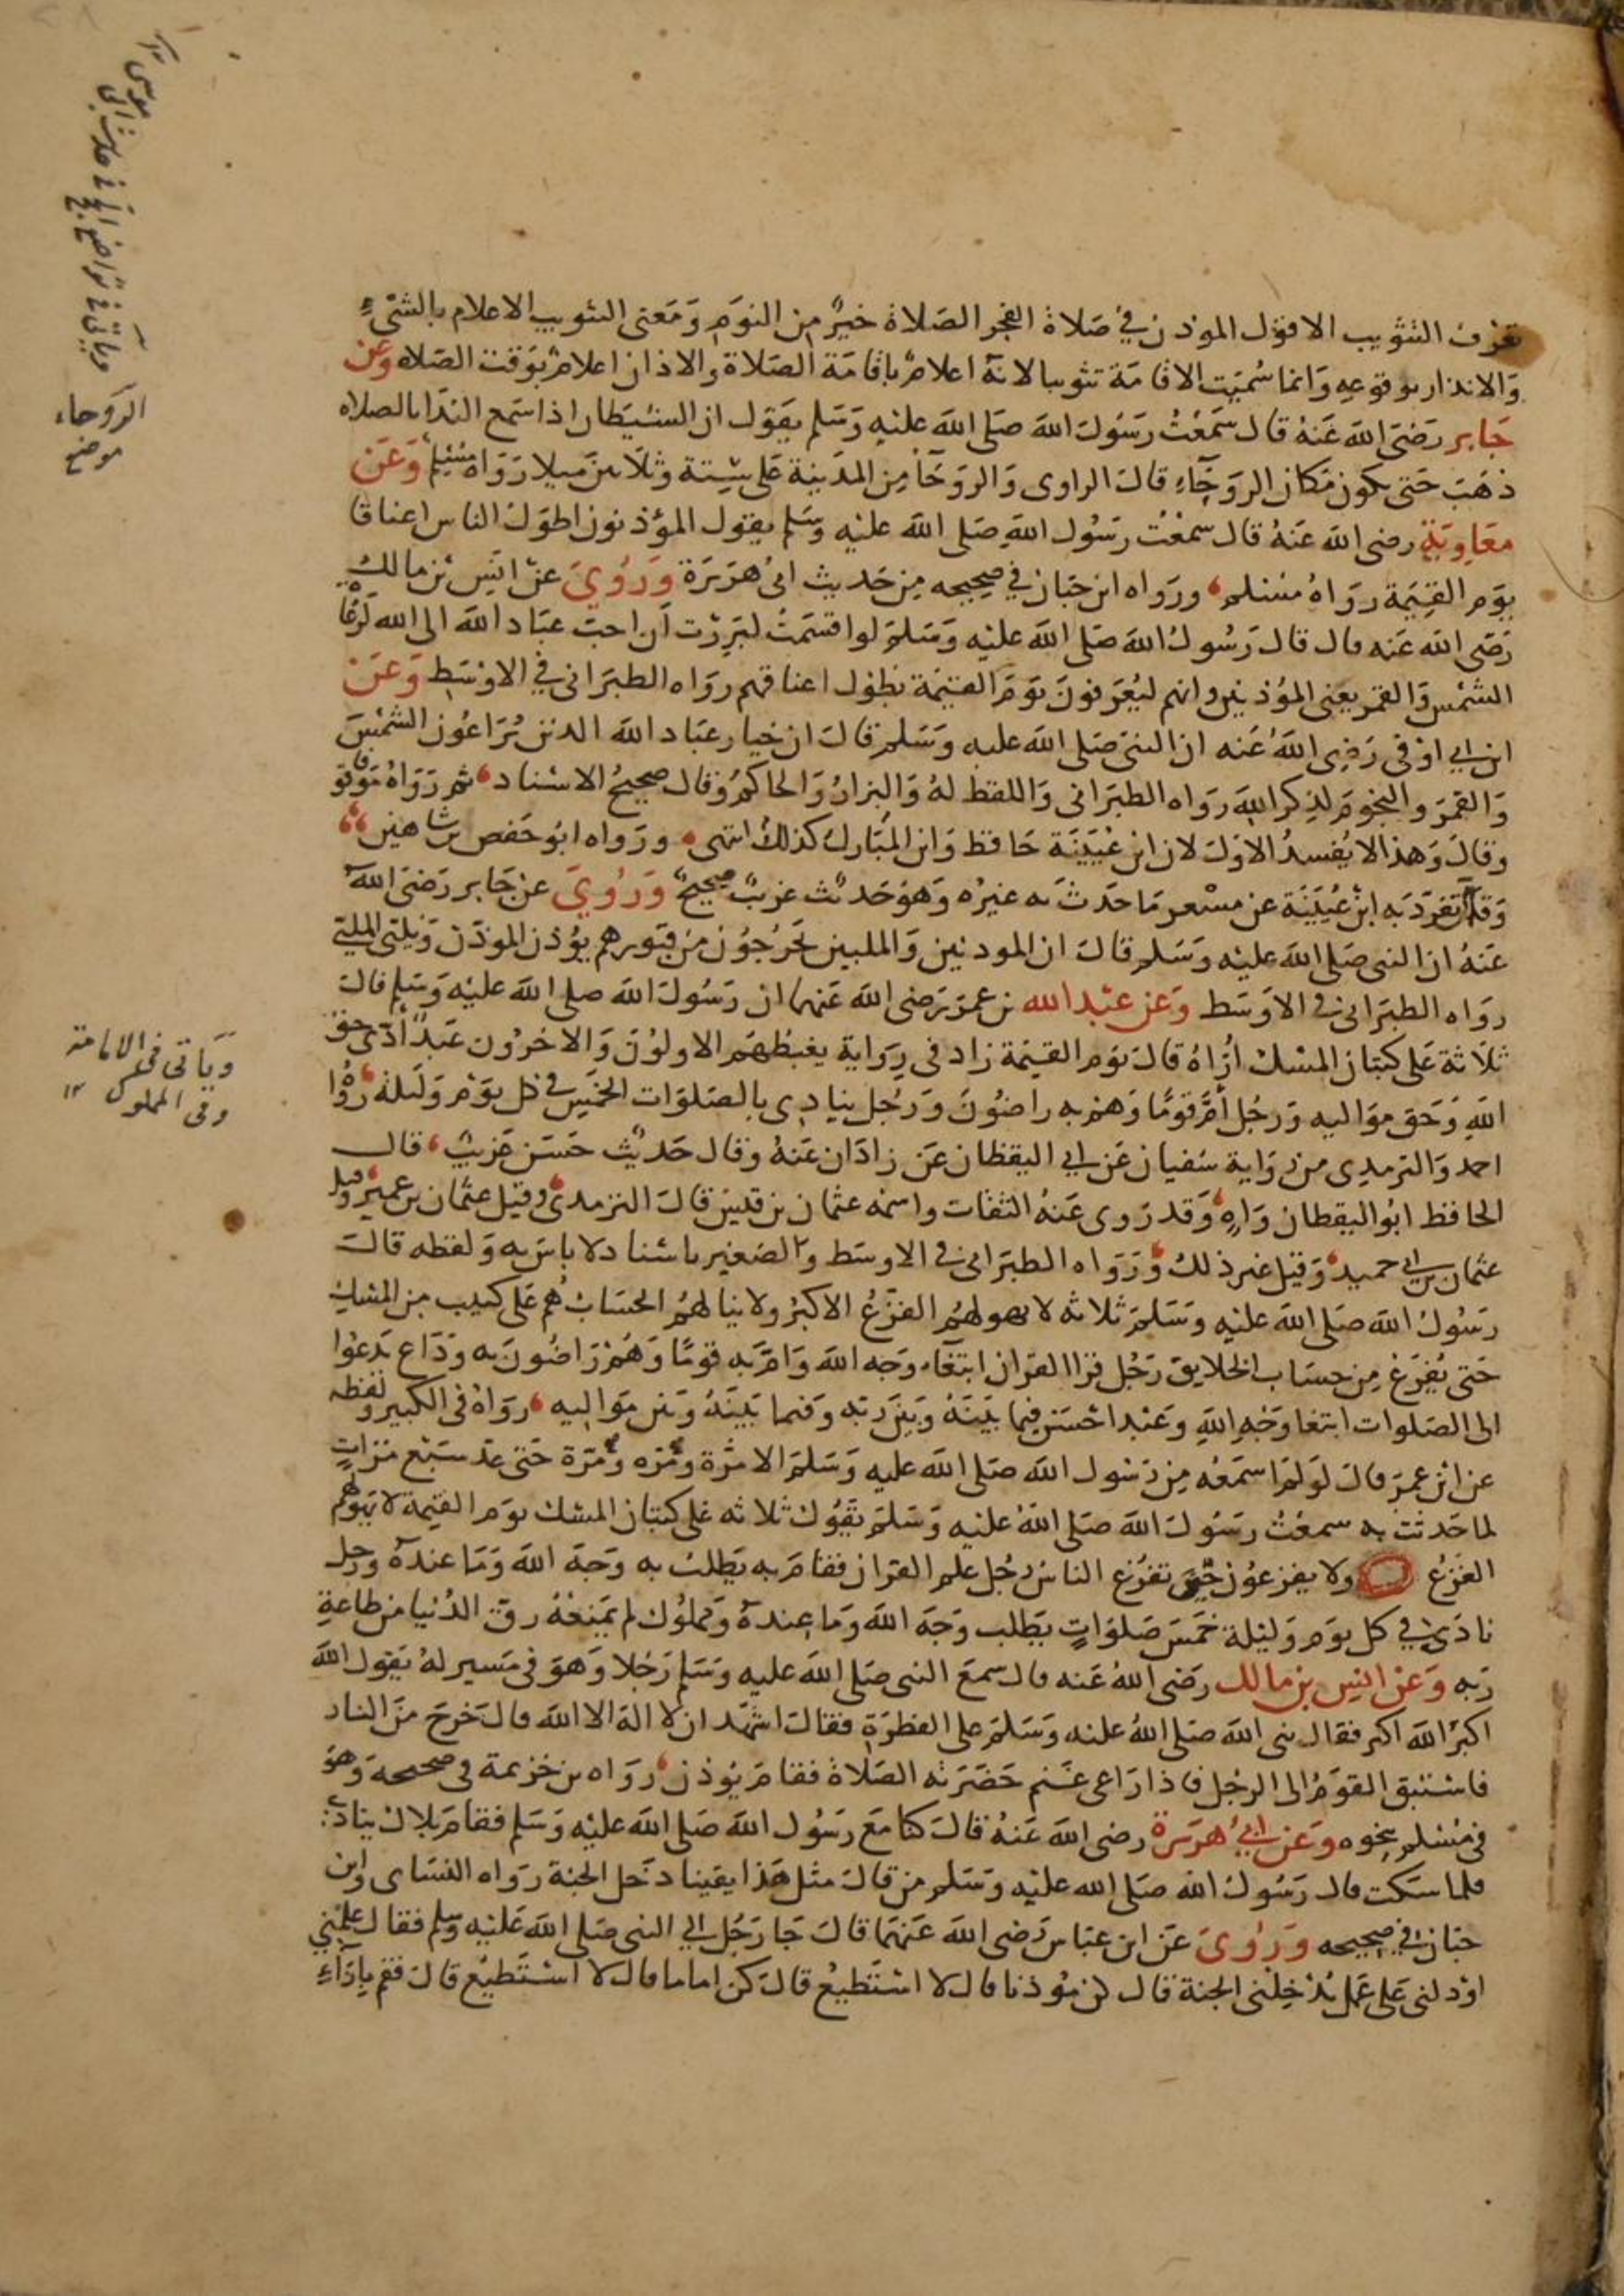 تعرف التثويب الا قول الموذن في صلاة الفجر الصلاة خير من النوم ومعنى التثويب الاعلام بالشيء
والانذار بوقوعه وانما سُميت الاقامة تثويبا لانه اعلام باقامة الصلاة والاذان اعلام بوقت الصلاه وعن
جابر رضى الله عنه قال سمعت رسول الله صلى الله عليه وسلم يقول ان الشيطان اذا سمع الندا بالصلاه
ذهب حتى يكون مكان الروحاء قال الراوى والروحا من المدينة على ستة وثلاثين ميلا رواه مسلم وعن
معاوية رضى الله عنه قال سمعت رسول الله صلى الله عليه وسلم يقول المؤذنون اطول الناس اعناقا
يوم القيمة رواه مسلم ورواه ابن حبان في صحيحه من حديث ابى هريرة وروي عن انس بن مالك
رضى الله عنه قال قال رسول الله صلى الله عليه وسلم لو اقسمت لبررت ان احب عباد الله الى الله لرعاة
الشمس والقمر يعنى المؤذنين وانهم ليعرفون يوم القيمة بطول اعناقهم رواه الطبرانى في الاوسط وعن
ابن ابي اوفى رضي الله عنه ان النبى صلى الله عليه وسلم قال ان خيار عباد الله الذين يراعون الشمس
والقمر والنجوم لذكر الله رواه الطبرانى واللفظ له والبزار والحاكم وقال صحيح الاسناد ثم رواه موقوفا
وقال وهذا لا يفسد الاول لان ابن عيينة حافظ وابن المبارك كذلك انتهى ورواه ابو حفص بن شاهين
وقال تفرد به ابن عيينة عن مسعر ما حدث به غيره وهو حديث غريب صحيح وروي عن جابر رضى الله
عنه ان النبى صلى الله عليه وسلم قال ان الموذنين والملبين يخرجون من قبورهم يؤذن الموذن ويلبى الملبي
رواه الطبرانى في الاوسط وعن عبد الله بن عمر رضى الله عنهما ان رسول الله صلى الله عليه وسلم قال
ثلاثة على كثبان المسك اُراه قال يوم القيمة زاد فى رواية يغبطهم الاولون والاخرون عبد أدى حق
الله وحق مواليه ورجل أمّ قوما وهم به راضون ورجل ينادى بالصلوات الخمس في كل يوم وليلة رواه
احمد والترمدى من رواية سفيان عن ابي اليقظان عن زادان عنه وقال حديث حسن غريب قال
الحافظ ابو اليقظان واه وقد روى عنه الثقات واسمه عثمان بن قيس قال الترمدى وقيل عثمان بن عمير وقيل
عثمان بن ابي حميد وقيل غير ذلك ورواه الطبرانى في الاوسط والصغير باسناد لا باس به ولفظه قال
رسول الله صلى الله عليه وسلم ثلاثه لا يهولهم الفزع الاكبر ولا ينالهم الحساب هم على كثيب من المسك
حتى يُفرغ من حساب الخلايق رجل قرا القران ابتغاء وجه الله وام به قوما وهم راضون به وداع يدعوا
الى الصلوات ابتغا وجه الله وعبد احسن فيما بينه وبين ربه وفيما بينه وبين مواليه رواه فى الكبير ولفظه
عن ابن عمر قال لو لم اسمعه من رسول الله صلى الله عليه وسلم الا مرة ومره ومرة حتى عد سبع مرات
لما حدثت به سمعت رسول الله صلى الله عليه وسلم يقول ثلاثه على كثبان المسك يوم القيمة لا يهولهم
الفزع ولا يفزعون حتى تفزع الناس رجل علم القران فقام به يطلب به وجه الله وما عنده ورجل
نادى في كل يوم وليلة خمس صلوات يطلب وجه الله وما عنده ومملوك لم يمنعه رق الدنيا من طاعة
ربه وعن انس بن مالك رضى الله عنه قال سمع النبى صلى الله عليه وسلم رجلا وهو فى مسير له يقول الله
اكبر الله اكبر فقال نبى الله صلى الله عليه وسلم على الفطرة فقال اشهد ان لا اله الا الله قال خرج من النار
فاستبق القوم الى الرجل فاذا راعى غنم حضرته الصلاة فقام يؤذن رواه بن خزيمة فى صحيحه وهو
فى مسلم بنحوه وعن ابي هريرة رضى الله عنه قال كنا مع رسول الله صلى الله عليه وسلم فقام بلال ينادى
فلما سكت قال رسول الله صلى الله عليه وسلم من قال مثل هذا يقينا دخل الجنة رواه النساى وابن
حبان في صحيحه وروى عن ابن عباس رضى الله عنهما قال جا رجل الي النبى صلى الله عليه وسلم فقال علمني
او دلنى على عمل يدخلنى الجنة قال كن مؤذنا قال لا استطيع قال كن اماما قال لا استطيع قال فقم بإزاء
وياتى في تواضع
فى حديث ابى موسى
الروحاء
موضع
وياتى فى الامامة
وفى المملوك